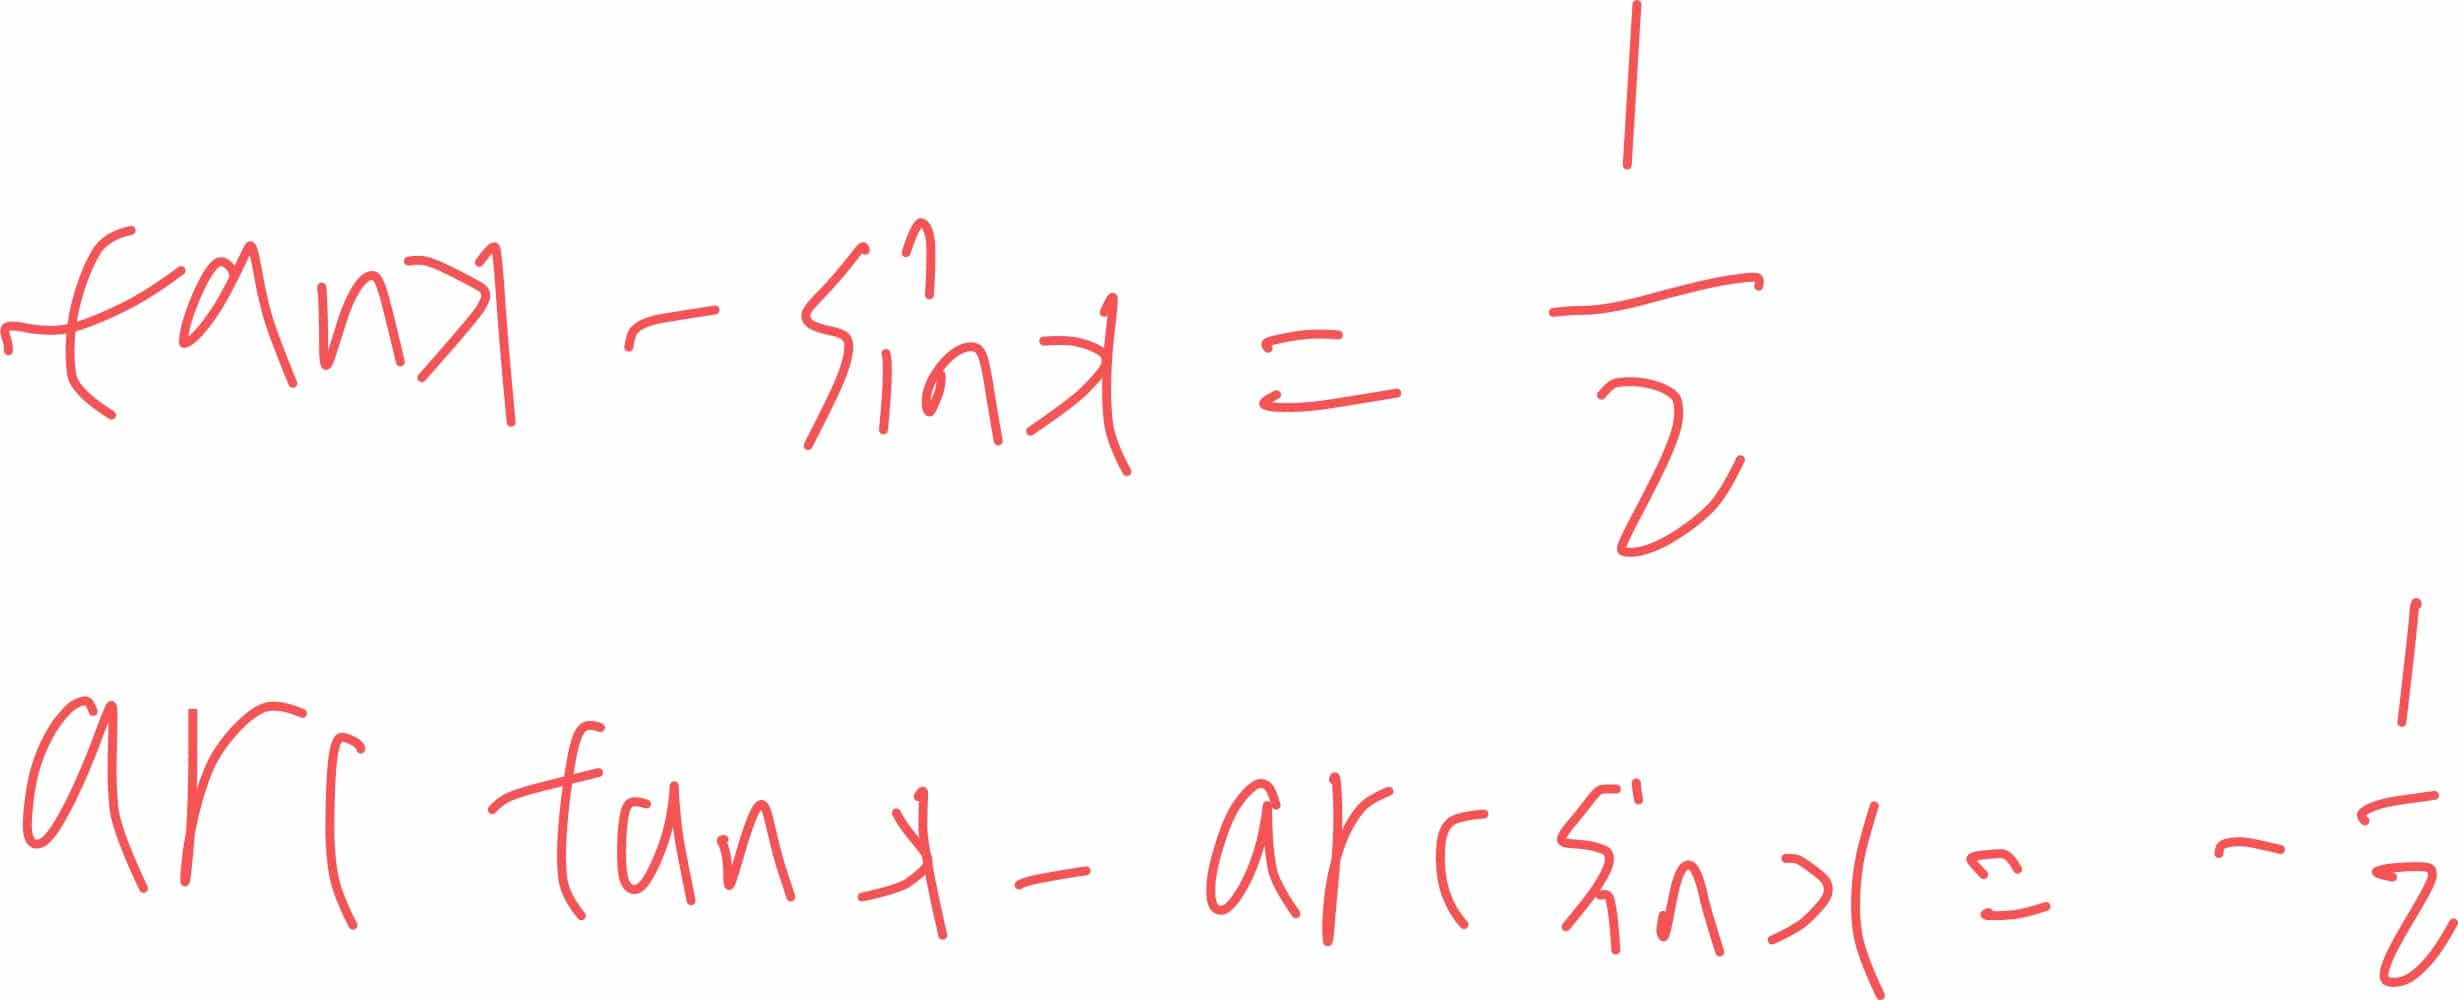 tan x - sin x = 1/2
arc tan x - arc sin x = - 1/2